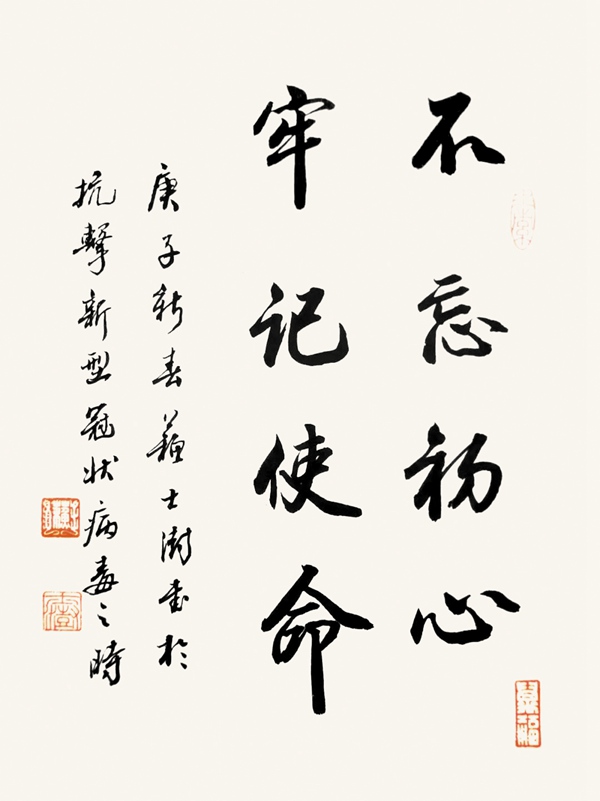 不忘初心
牢记使命
庚子新春蘇士澍書於
抗擊新型冠狀病毒之時